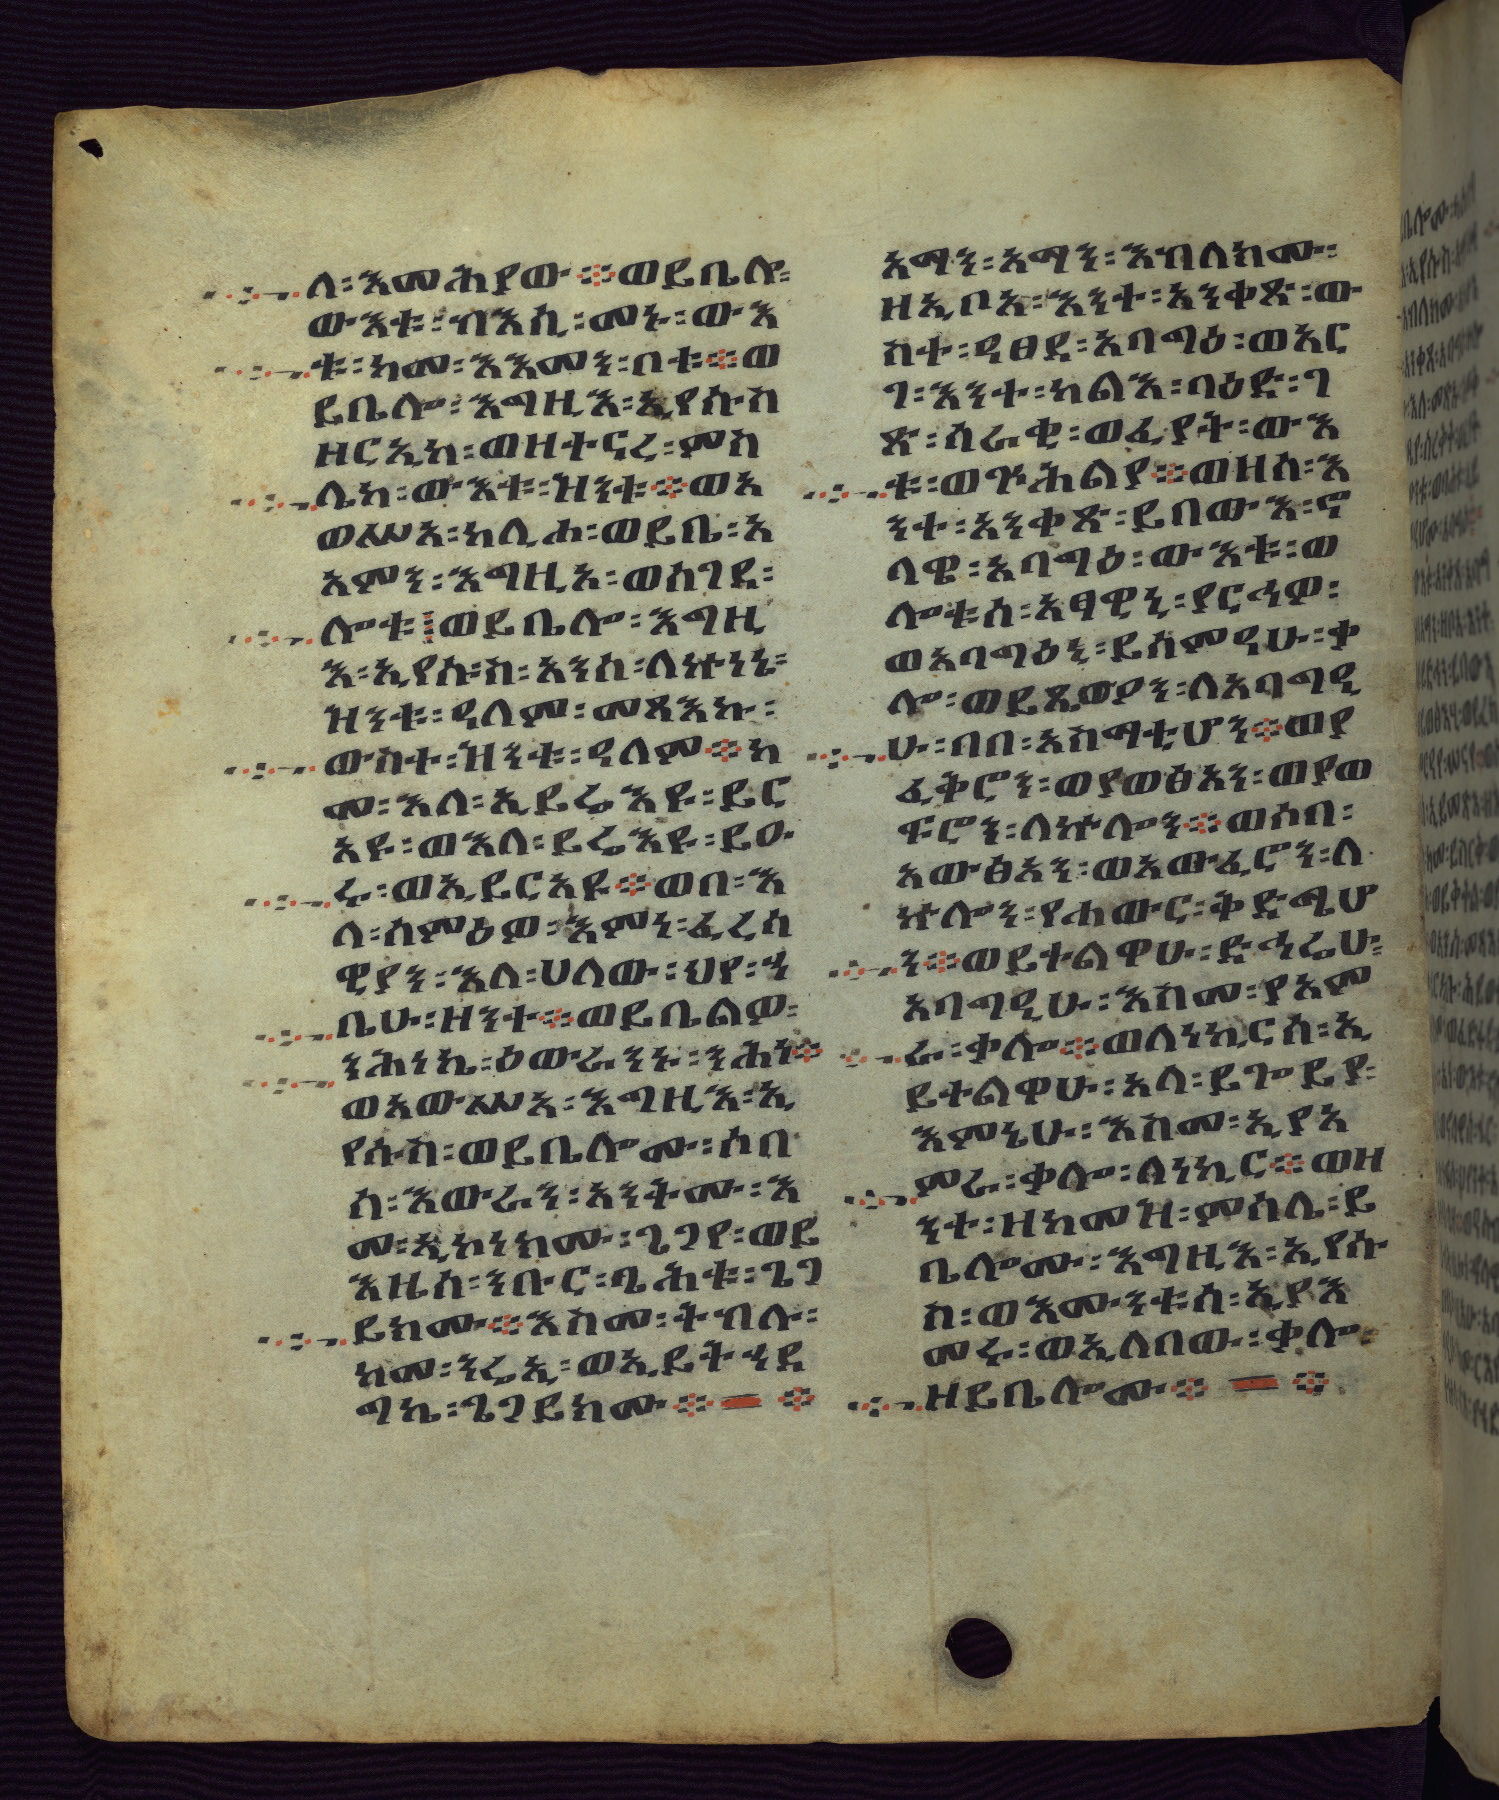 ለ፡እመሕያው፨ወይቤሎ፡
ውእቱ፡ብእሲ፡መኑ፡ውእ
ቱ፡ከመ፡እእመን፡ቦቱ፨ወ
ይቤሎ፡እግዚእ፡ኢየሱስ
ዘርኢከ፡ወዘተናገረ፡ምስ
ሌከ፡ውእቱ፡ዝንቱ፨ወአ
ወሥአ፡ከልሐ፡ወይቤ፡አ
አምን፡እግዚኦ፡ወሰገደ፡
ሎቱ፨ወይቤሎ፡እግዚ
እ፡ኢየሱስ፡አንሰ፡ለኵነኔ፡
ዝንቱ፡ዓለም፡መጻእኩ፡
ውስተ፡ዝንቱ፡ዓለም፨ከ
መ፡እለ፡ኢይሬእዩ፡ይር
አዩ፡ወእለ፡ይሬእዩ፡ይዑ
ሩ፡ወኢይርአዩ፨ወቦ፡እ
ለ፡ሰምዕዎ፡እምነ፡ፈሪሳ
ዊያን፡እለ፡ሀለው፡ህየ፡ኀ
ቤሁ፡ዘንተ፨ወይቤልዎ፡
ንሕነኬ፡ዕውራንኑ፡ንሕነ፨
ወአውሥአ፡እግዚእ፡ኢ
የሱስ፡ወይቤሎሙ፡ሶበ
ሰ፡እውራን፡አንትሙ፡እ
ም፡ኢኮነክሙ፡ጌጋየ፡ወይ
እዜሰ፡ንቡር፡ጌሕቱ፡ጌጋ
ይክሙ፨እስመ፡ትብሉ፡
ከመ፡ንሬኢ፡ወኢይትኀደ
ግኬ፡ጌጋይክሙ፨፨
አማን፡አማን፡እብለክሙ፡
ዘኢቦአ፡እንተ፡አንቀጽ፡ው
ስተ፡ዓፀደ፡አባግዕ፡ወአር
ገ፡እንተ፡ካልእ፡ባዕድ፡ገ
ጽ፡ሰራቂ፡ወፈያት፡ውእ
ቱ፡ወጕሕልያ፨ወዘሰ፡እ
ንተ፡አንቀጽ፡ይበውእ፡ኖ
ላዌ፡አባግዕ፡ውእቱ፡ወ
ሎቱሰ፡አፃዊኒ፡ያርኅዎ፡
ወአባግዕኒ፡ይሰምዓሁ፡ቃ
ሎ፡ወይጼውዖን፡ለአባግዒ
ሁ፡በበ፡አስማቲሆን፨ወያ
ፈቅሮን፡ወያወፅኦን፡ወያወ
ፍሮን፡ለኵሎን፨ወሶበ፡
አውፅኦን፡ወአውፈሮን፡ለ
ኵሎን፡የሐውር፡ቅድሜሆ
ን፨ወይተልዋሁ፡ድኅሬሁ፡
አባግዒሁ፡እስመ፡ያአም
ራ፡ቃሎ፨ወለነኪርሰ፡ኢ
ይተልዋሁ፡አላ፡ይጐይያ፡
እምኔሁ፡እስመ፡ኢያአ
ምራ፡ቃሎ፡ለነኪር፨ወዘ
ንተ፡ዘከመዝ፡ምሳሌ፡ይ
ቤሎሙ፡እግዚእ፡ኢየሱ
ስ፡ወእሙንቱሰ፡ኢያእ
መሩ፡ወኢለበው፡ቃሎ፡
ዘይቤሎሙ፨፨